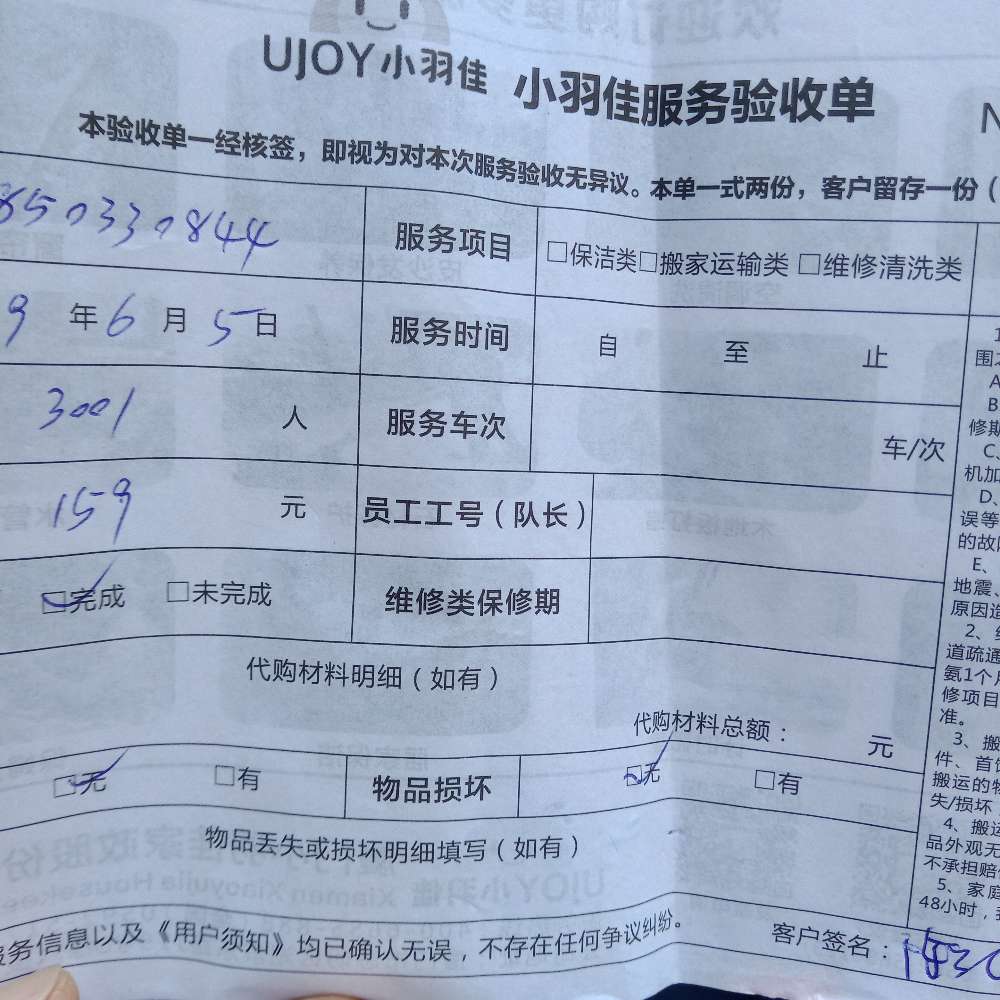 UJOY小羽佳 小羽佳服务验收单
本验收单一经核签，即视为对本次服务验收无异议。本单一式两份，客户留存一份（
8503330844 服务项目 □保洁类□搬家运输类 □维修清洗类
9 年 6 月 5 日 服务时间 自 至 止
3001 人 服务车次 车/次
159 元 员工工号（队长）
完成 □未完成 维修类保修期
代购材料明细（如有）
代购材料总额： 元
无 □有 物品损坏 无 □有
物品丢失或损坏明细填写（如有）
服务信息以及《用户须知》均已确认无误，不存在任何争议纠纷。
客户签名：
围
A
B
修期
C、
机加
D、
误等
的故
E、
地震、
原因造
2、
道疏通
氨1个月
修项目
准。
3、搬
件、首饰
搬运的物
失/损坏
4、搬运
品外观无
不承担赔
5、家庭
48小时，